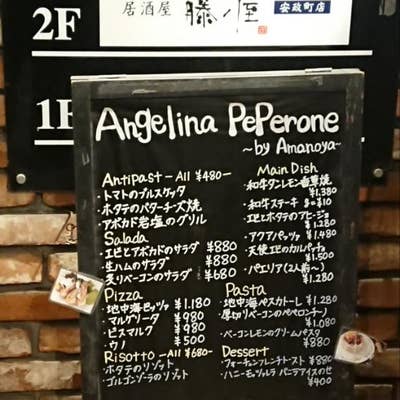 2F
居酒屋 藤ノ屋 安政町店
1F
Angelina PePerone
~by Amanoya~
Antipast - All ¥480-
・トマトのブルスケッタ
・ホタテのバターチーズ焼
・アボカド岩塩のグリル
Salada
・エビとアボカドのサラダ ¥880
・生ハムのサラダ ¥880
・炙りベーコンのサラダ ¥680
Pizza
・地中海ピッツァ ¥1.180
・マルゲリータ ¥980
・ビスマルク ¥980
・ウノ ¥500
Risotto - All ¥680-
・ホタテのリゾット
・ゴルゴンゾーラのリゾット
Main Dish
・和牛タンレモン香草焼
¥1.380
・和牛ステーキ
・エビとホタテのアヒージョ
¥1.380
・アクアパッツァ ¥1.480
・天使エビのカルパッチョ
¥1.500
・パエリア(2人前~)
¥1.350
Pasta
・地中海ペスカトーレ ¥1.280
・厚切りベーコンのペペロンチーノ
¥1.080
・ベーコンレモンのクリームパスタ
¥880
Dessert
・フォーチュンフレンチトースト ¥880
・ハニーモッツァレラ バニラアイスのせ
¥400